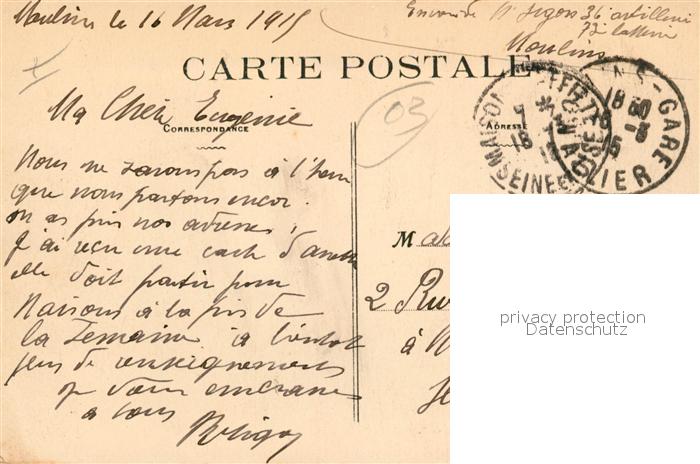 Moulins le 16 Mars 1915
36 artillerie
72
Moulins
CARTE POSTALE
Ma Chère Eugénie
CORRESPONDANCE
03
ADRESSE
Nous ne savons pas à l'heure
que nous partons encor.
on as pris nos adresses,
J'ai reçu une carte
elle doit partir pour
Maisons à la fin de
la Semaine à bientot
de renseignements
embrasse
a tous
MAISON
SEINE
GARE
ALLIER
18
M
2 Ru
à
privacy protection
Datenschutz